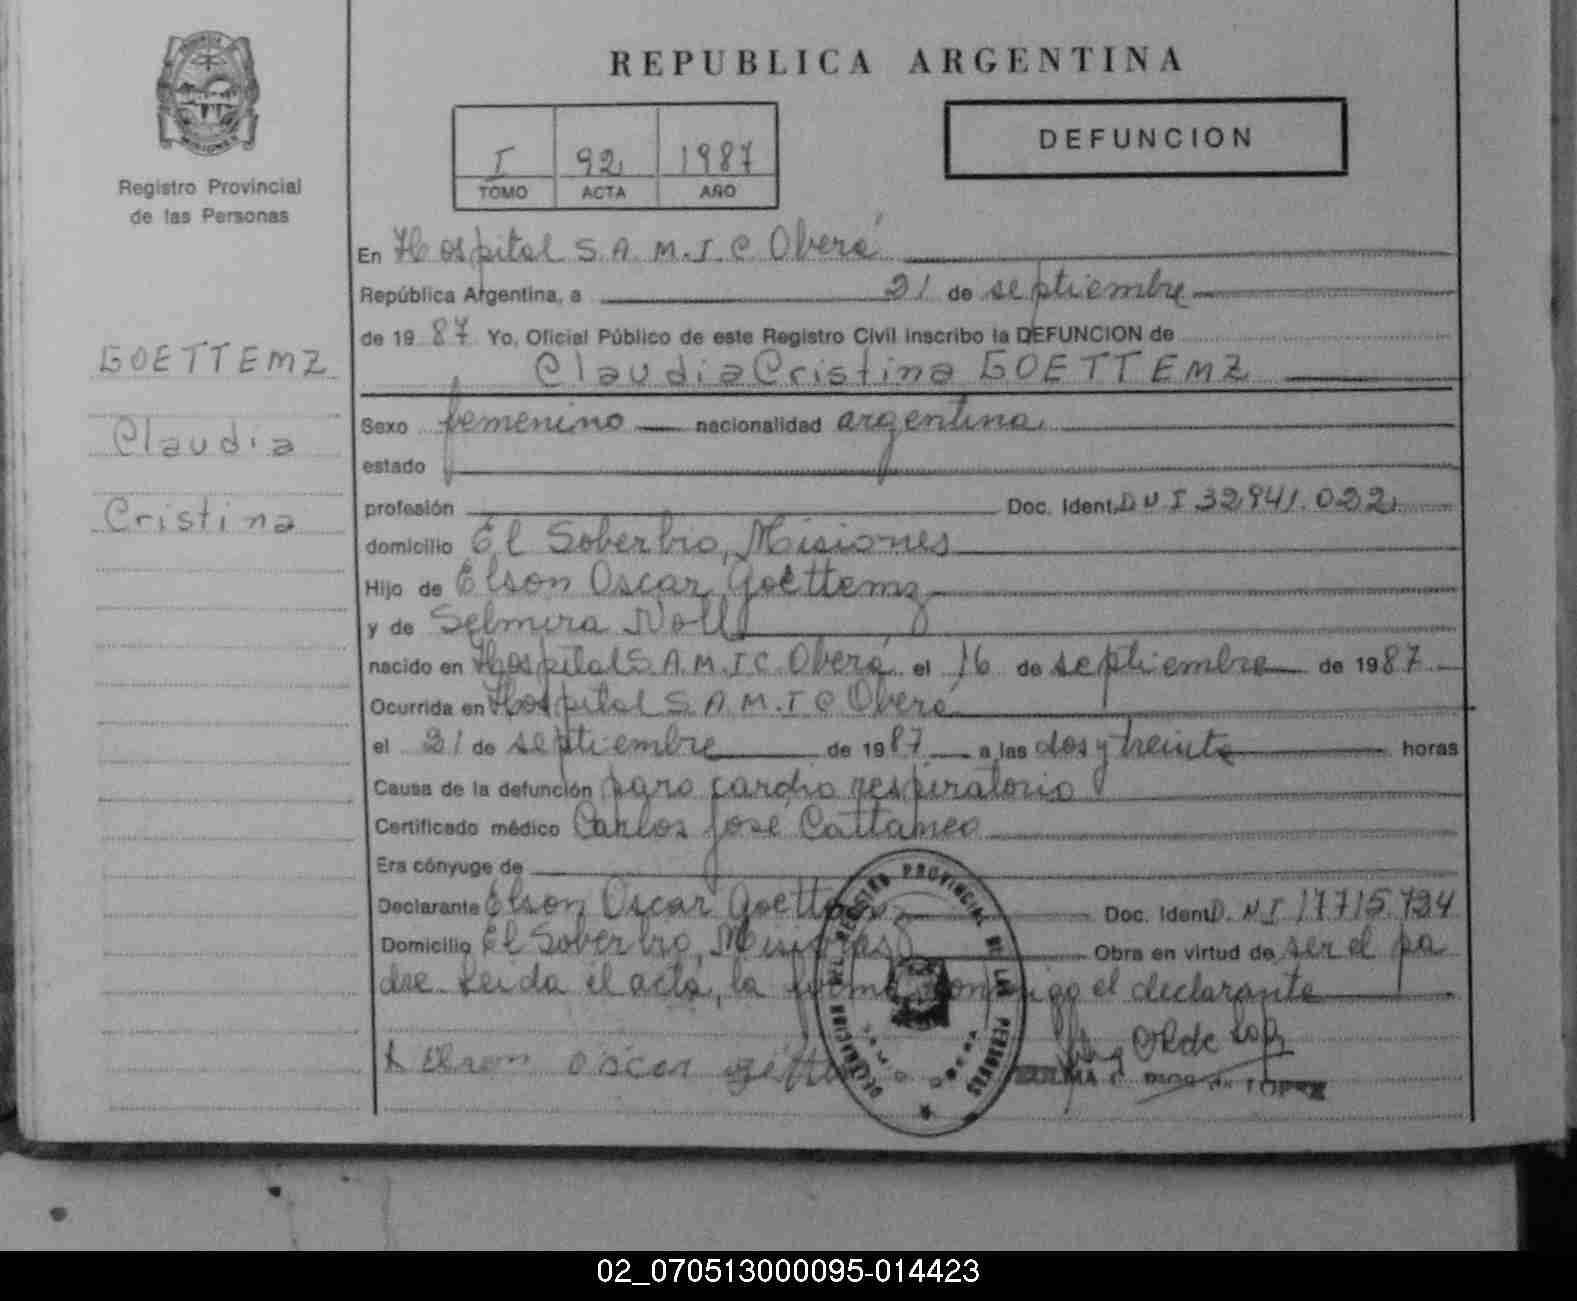 REPUBLICA ARGENTINA
I 92 1987
TOMO ACTA AÑO
DEFUNCION
Registro Provincial
de las Personas
GOETTEMZ
Claudia
Cristina
En Hospital S.A.M.I.C Oberá
República Argentina, a 21 de septiembre
de 1987 Yo, Oficial Público de este Registro Civil inscribo la DEFUNCION de
Claudia Cristina GOETTEMZ
Sexo femenino nacionalidad argentina
estado
profesión Doc. Ident. DNI 32.941.022
domicilio El Soberbio, Misiones
Hijo de Elson Oscar Goettemz
y de Selmira Noll
nacido en Hospital S.A.M.I.C. Oberá el 16 de septiembre de 1987
Ocurrida en Hospital S.A.M.I.C Oberá
el 21 de septiembre de 1987 a las dos y treinta horas
Causa de la defunción paro cardio respiratorio
Certificado médico Carlos José Cattaneo
Era cónyuge de
Declarante Elson Oscar Goettemz Doc. Ident. D.N.I 17715.734
Domicilio El Soberbio, Misiones Obra en virtud de ser el pa
dre. Leida el acta, la firma conmigo el declarante
Elson oscar
REGISTRO PROVINCIAL DE LAS PERSONAS
02_070513000095-014423